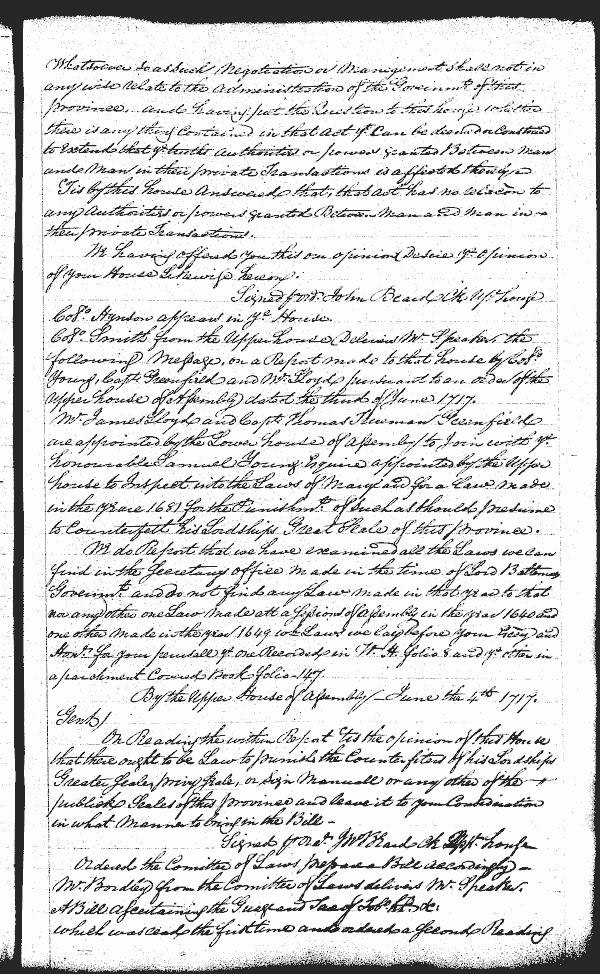 Whatsoever so as such Negotiation or Management shall not in
any wise relate to the Administration of the Governmt. of this
province, and having put the Question to this house whether
there is any thing Contained in that Act yt. Can be deemd or Construed
to Extend that ye. authorities or powers granted Between man
and Man in their private Transactions is affected thereby
Tis by this house Answered that, that act has no relacon to
any Authorities or powers granted Between Man and Man in
their private Transactions.
We having offered you this our opinion Desire ye. Opinion
of your House Likewise hereon.
Signed p ordr. John Beard Ck Upr. house
Colo. Hynson appears in ye. House.
Colo. Smith from the Upper house Delivers Mr. Speaker, the
following Message, on a Report made to that house by Colo.
Young, Capt. Greenfield and Mr. Lloyd pursuant to an order of the
Upper house of Assembly dated the third of June 1717.
Mr. James Lloyd and Capt. Thomas Trueman Greenfield
are appointed by the Lower house of Assembly to Join with ye.
honourable Samuel Young Esquire appointed by the Upper
house to Inspect into the Laws of Maryland for a Law made
in the year 1651 for the Punishmt. of such as should presume
to Counterfeit his Lordships Great Seale of this province.
We do Report that we have examined all the Laws we can
find in the Secretary office made in the time of Lord Baltimore
Governmt. and do not find any Law made in that year to that
nor any other one Law made att a Sessions of Assembly in the year 1640 and
one other made in the year 1649 wch Laws we lay before your Excy. and
Honrs. for your perusall ye. one Recorded in W. H. folio 8 and ye. other in
a parchment Covered Book folio 147
By the Upper House of Assembly June the 4th 1717.
Gent/
On Reading the within Report 'tis the opinion of this House
that there ought to be Law to punish the Counterfiters of his Lordships
Greater Seale, privy Seale, or Sign Manuall or any other of the
publick Seales of this province and leave it to your Consideration
in what Manner to bring in the Bill
Signed p ordr. Jno Beard Ck Upr. house
Ordered the Comittee of Laws prepare a Bill accordingly
Mr. Bordley from the Comittee of Laws delivers Mr. Speaker,
A Bill ascertaining the Guage and Tare of Tobo. hhds. &c.
which was read the first time and ordered a second Reading